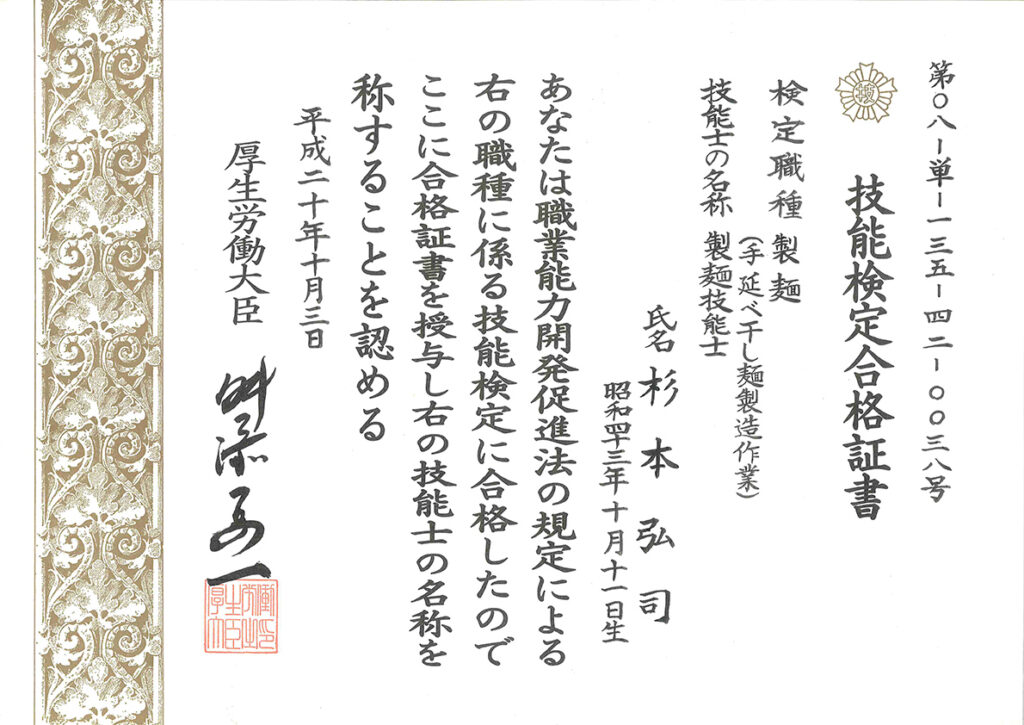 第〇八-単-一三五-四二-〇〇三八号
技能検定合格証書
検定職種 製麺
(手延べ干し麺製造作業)
技能士の名称 製麺技能士
氏名 杉本弘司
昭和四十三年十月十一日生
あなたは職業能力開発促進法の規定による
右の職種に係る技能検定に合格したので
ここに合格証書を授与し右の技能士の名称を
称することを認める
平成二十年十月三日
厚生労働大臣 舛添要一
厚生労働大臣印